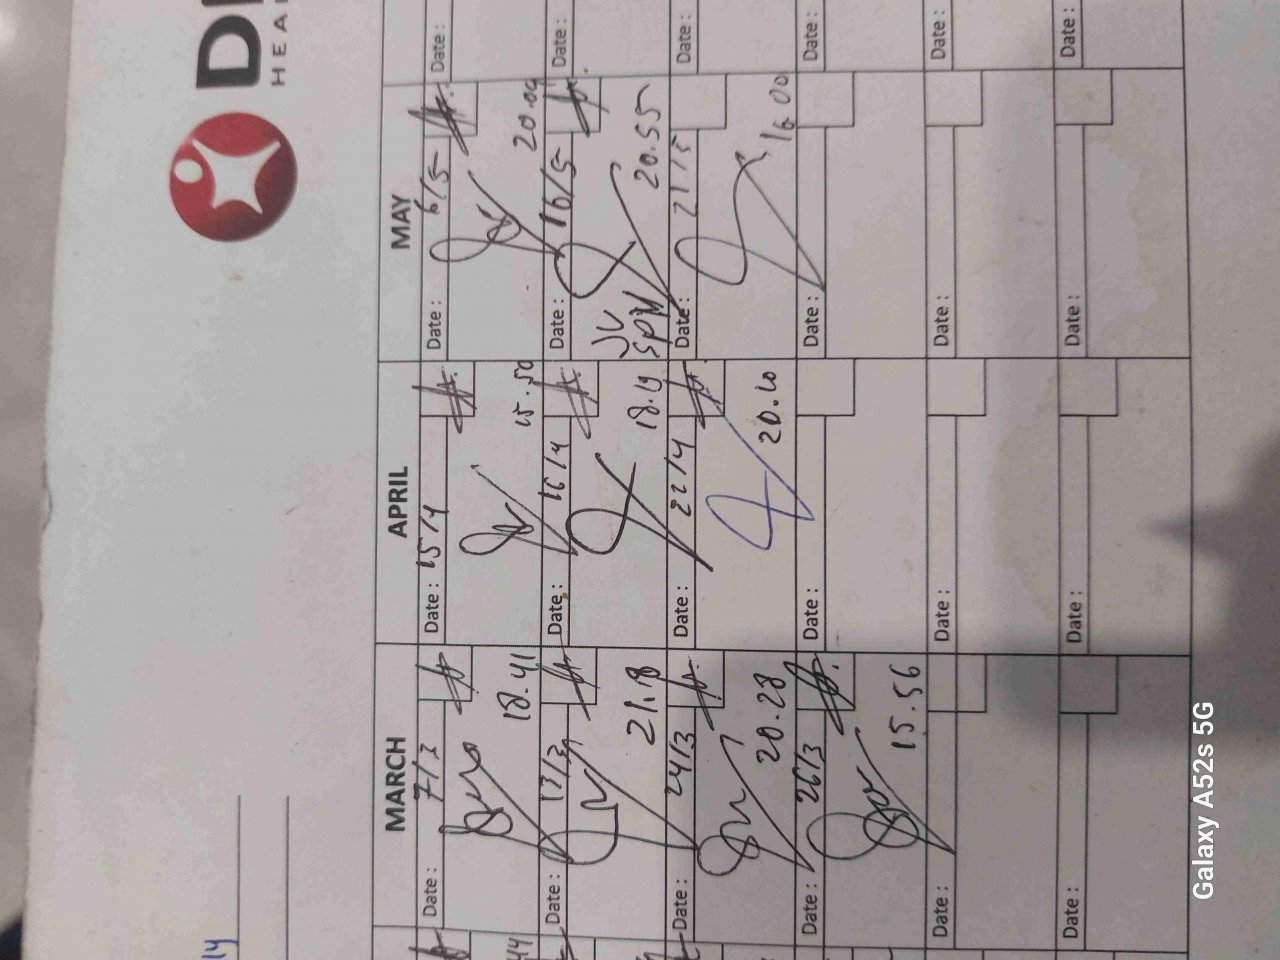 D
HEA
MARCH
APRIL
MAY
Date : 7/3
Date : 15/4
Date : 6/5
Date :
18.41
15.50
20.09
Date : 13/3
Date : 16/4
Date : 16/5
Date :
21.18
18.19
JV
SPM
20.55
Date : 24/3
Date : 22/4
Date : 21/5
Date :
20.28
20.10
16.00
Date : 26/3
Date :
Date :
Date :
15.56
Date :
Date :
Date :
Date :
Date :
Date :
Date :
Date :
Galaxy A52s 5G